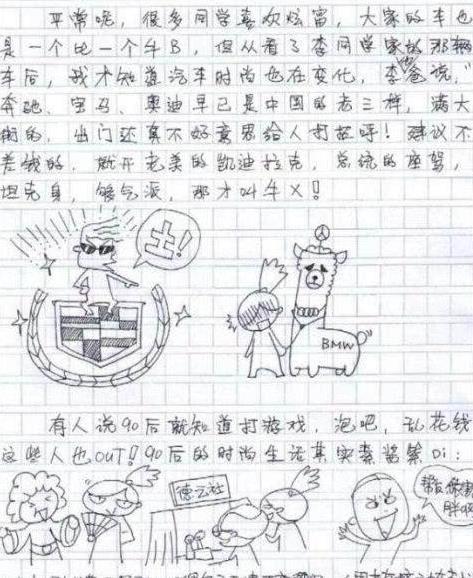 平常呢，很多同学喜欢炫富，大家的车也
是一个比一个牛B，但从看了李同学家的那辆
车后，我才知道汽车时尚也在变化，李爸说，“
奔驰、宝马、奥迪早已是中国的老三样，满大
街的，出门还真不好意思给人打招呼！建议不
差钱的，就开老美的凯迪拉克，总统的座驾，
坦克身，够气派，那才叫牛X！
土！
BMW
有人说90后就知道打游戏，泡吧，乱花钱
这些人也OUT！90后的时尚生活其实紧Di：
德云社